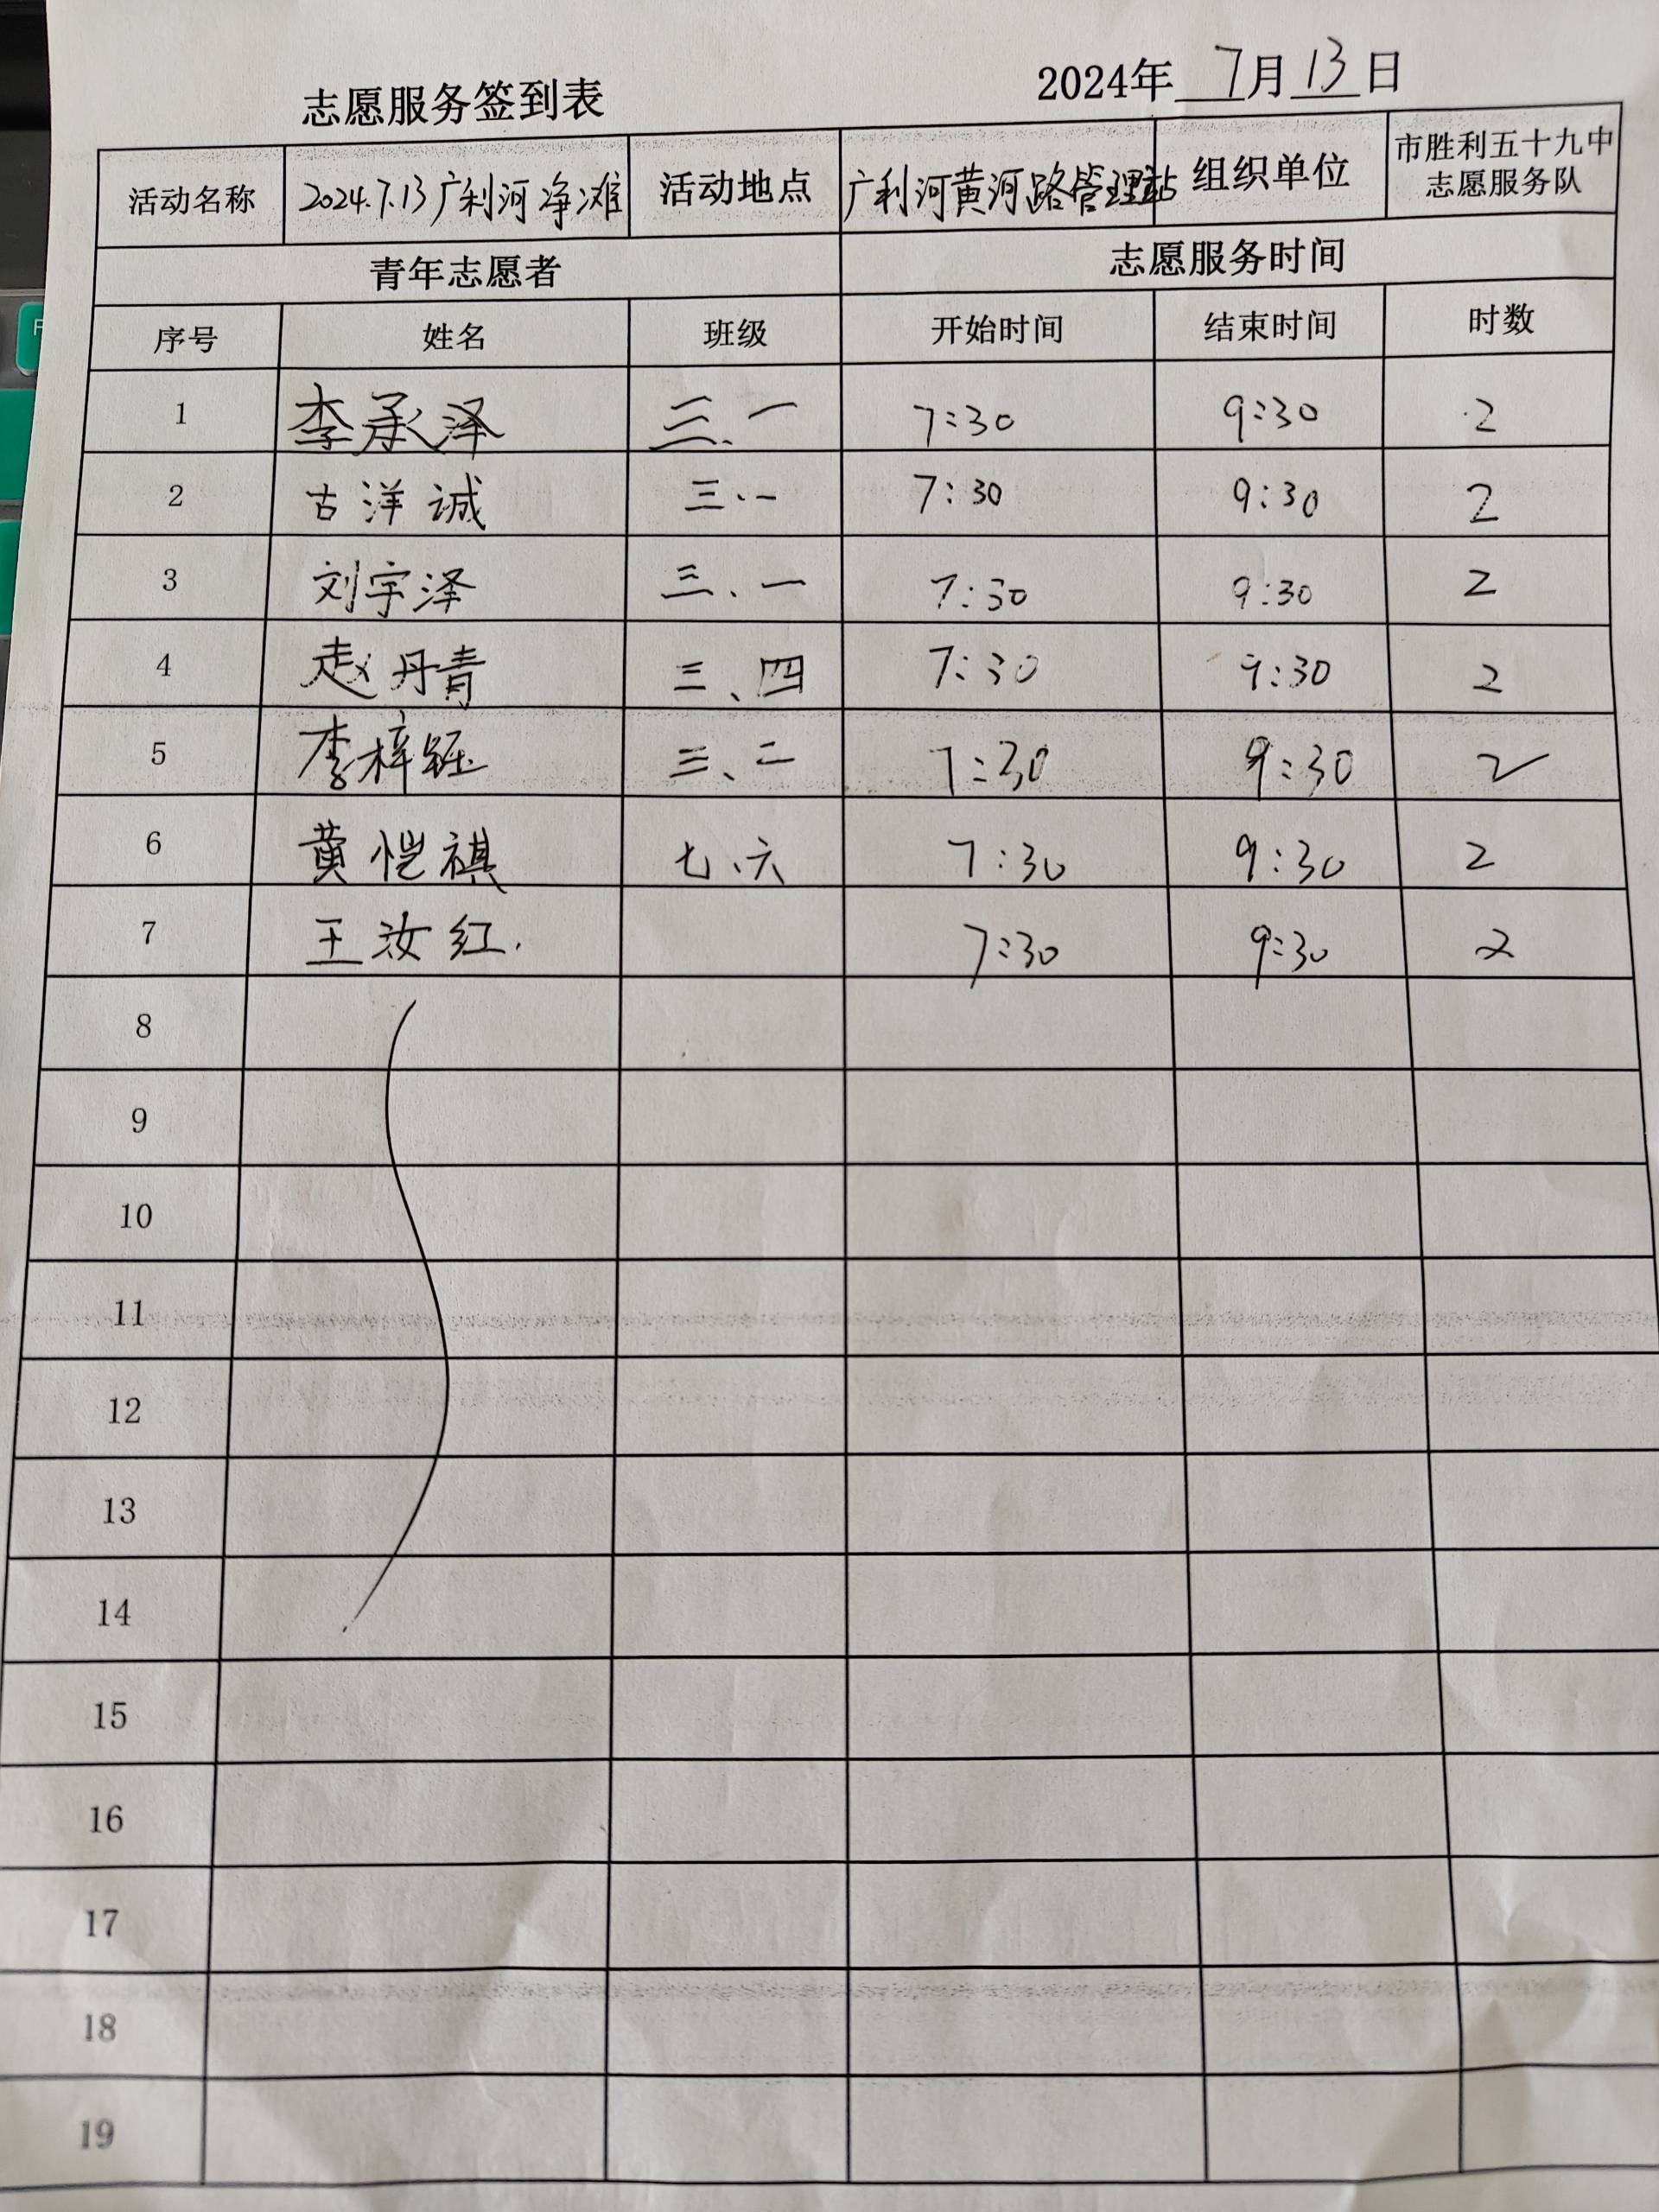 志愿服务签到表 2024年 7月13日
活动名称 2024.7.13广利河净滩 活动地点 广利河黄河路管理站 组织单位 市胜利五十九中
志愿服务队
青年志愿者 志愿服务时间
序号 姓名 班级 开始时间 结束时间 时数
1 李承泽 三.一 7:30 9:30 2
2 古洋诚 三.一 7:30 9:30 2
3 刘宇泽 三、一 7:30 9:30 2
4 赵丹青 三、四 7:30 9:30 2
5 李梓钰 三、二 7:30 9:30 2
6 黄恺祺 七、六 7:30 9:30 2
7 王汝红. 7:30 9:30 2
8
9
10
11
12
13
14
15
16
17
18
19